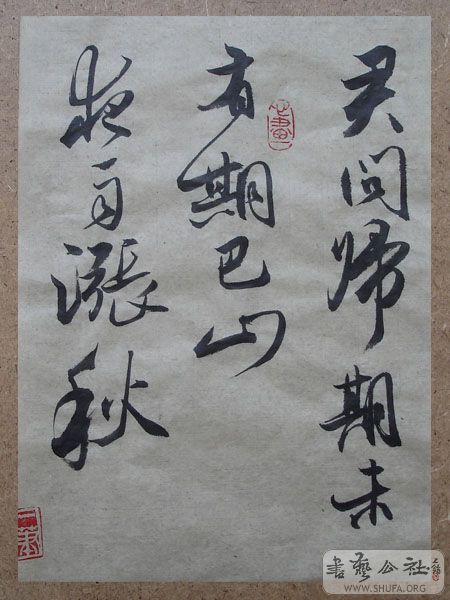 君问归期未
有期巴山
夜雨涨秋
書藝公社
WWW.SHUFA.ORG